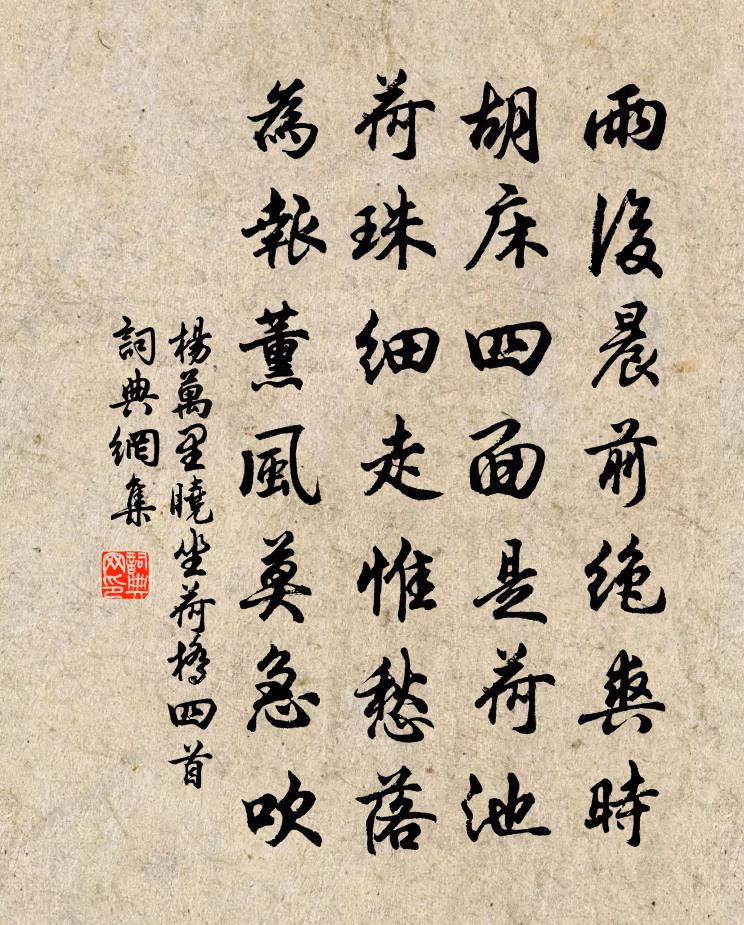 雨後晨前絶爽時
胡床四面是荷池
荷珠細走惟愁落
為報薰風莫急吹
楊萬里曉坐荷橋四首
詞典網集
詞典網印